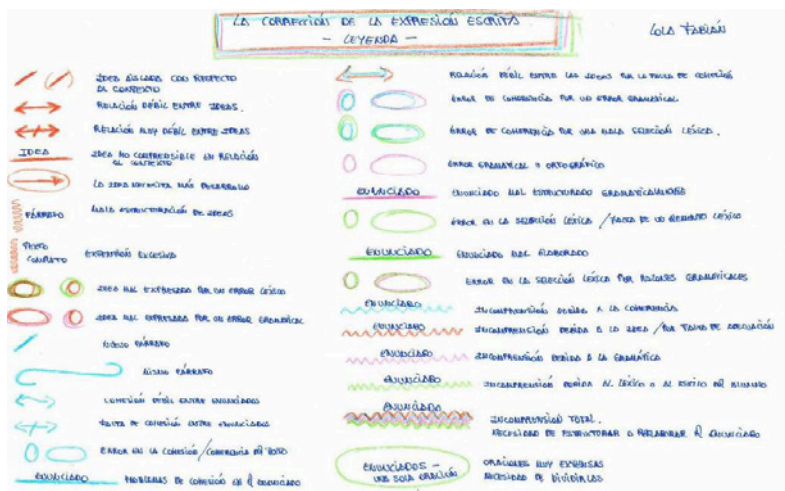 LA CORRECCIÓN DE LA EXPRESIÓN ESCRITA
- LEYENDA -
LOLA FABIÁN
IDEA AISLADA CON RESPECTO
AL CONTEXTO
RELACIÓN DÉBIL ENTRE IDEAS.
RELACIÓN MUY DÉBIL ENTRE IDEAS
IDEA
IDEA NO COMPRENSIBLE EN RELACIÓN
AL CONTEXTO
LA IDEA NECESITA MÁS DESARROLLO
PÁRRAFO
MALA ESTRUCTURACIÓN DE IDEAS
TEXTO
COMPLETO
EXTENSIÓN EXCESIVA
IDEA MAL EXPRESADA POR UN ERROR LÉXICO
IDEA MAL EXPRESADA POR UN ERROR GRAMATICAL
NUEVO PÁRRAFO
MISMO PÁRRAFO
COHESIÓN DÉBIL ENTRE ENUNCIADOS
FALTA DE COHESIÓN ENTRE ENUNCIADOS
ERROR EN LA COHESIÓN/COHERENCIA DEL TEXTO
ENUNCIADO
PROBLEMAS DE COHESIÓN EN EL ENUNCIADO
RELACIÓN DÉBIL ENTRE LAS IDEAS POR LA FALTA DE COHESIÓN
ERROR DE COHERENCIA POR UN ERROR GRAMATICAL
ERROR DE COHERENCIA POR UNA MALA SELECCIÓN LÉXICA.
ERROR GRAMATICAL U ORTOGRÁFICO
ENUNCIADO
ENUNCIADO MAL ESTRUCTURADO GRAMATICALMENTE
ERROR EN LA SELECCIÓN LÉXICA / FALTA DE UN ELEMENTO LÉXICO
ENUNCIADO
ENUNCIADO MAL ELABORADO
ERROR EN LA SELECCIÓN LÉXICA POR RAZONES GRAMATICALES
ENUNCIADO
INCOMPRENSIÓN DEBIDA A LA COHERENCIA
ENUNCIADO
INCOMPRENSIÓN DEBIDA A LA IDEA / POR FALTA DE ADECUACIÓN
ENUNCIADO
INCOMPRENSIÓN DEBIDA A LA GRAMÁTICA
ENUNCIADO
INCOMPRENSIÓN DEBIDA AL LÉXICO O AL ESTILO DEL ALUMNO
ENUNCIADO
INCOMPRENSIÓN TOTAL.
NECESIDAD DE ESTRUCTURAR O REELABORAR EL ENUNCIADO
ENUNCIADOS -
UNA SOLA ORACIÓN
ORACIONES MUY EXTENSAS
NECESIDAD DE DIVIDIRLAS